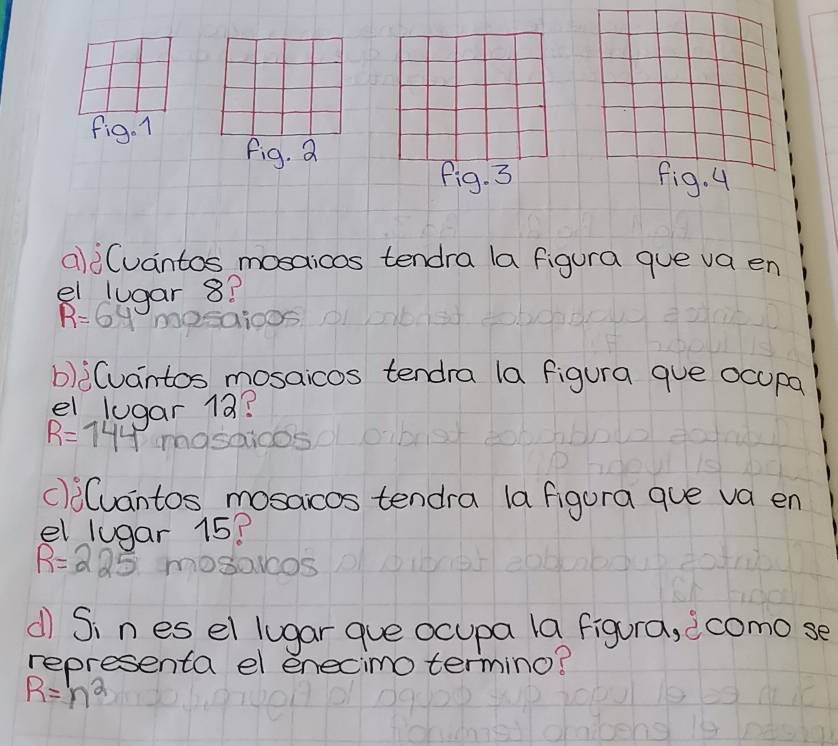 fig.1
fig. 2
fig.3
fig.4
a)¿Cuántos mosaicos tendra la figura que va en
el lugar 8?
R=64 mosaicos
b)¿Cuántos mosaicos tendra la figura que ocupa
el lugar 12?
R=144 mosaicos
c)¿Cuántos mosaicos tendra la figura que va en
el lugar 15?
R=225 mosaicos
d) Si n es el lugar que ocupa la figura, ¿como se
representa el enecimo termino?
R=n²